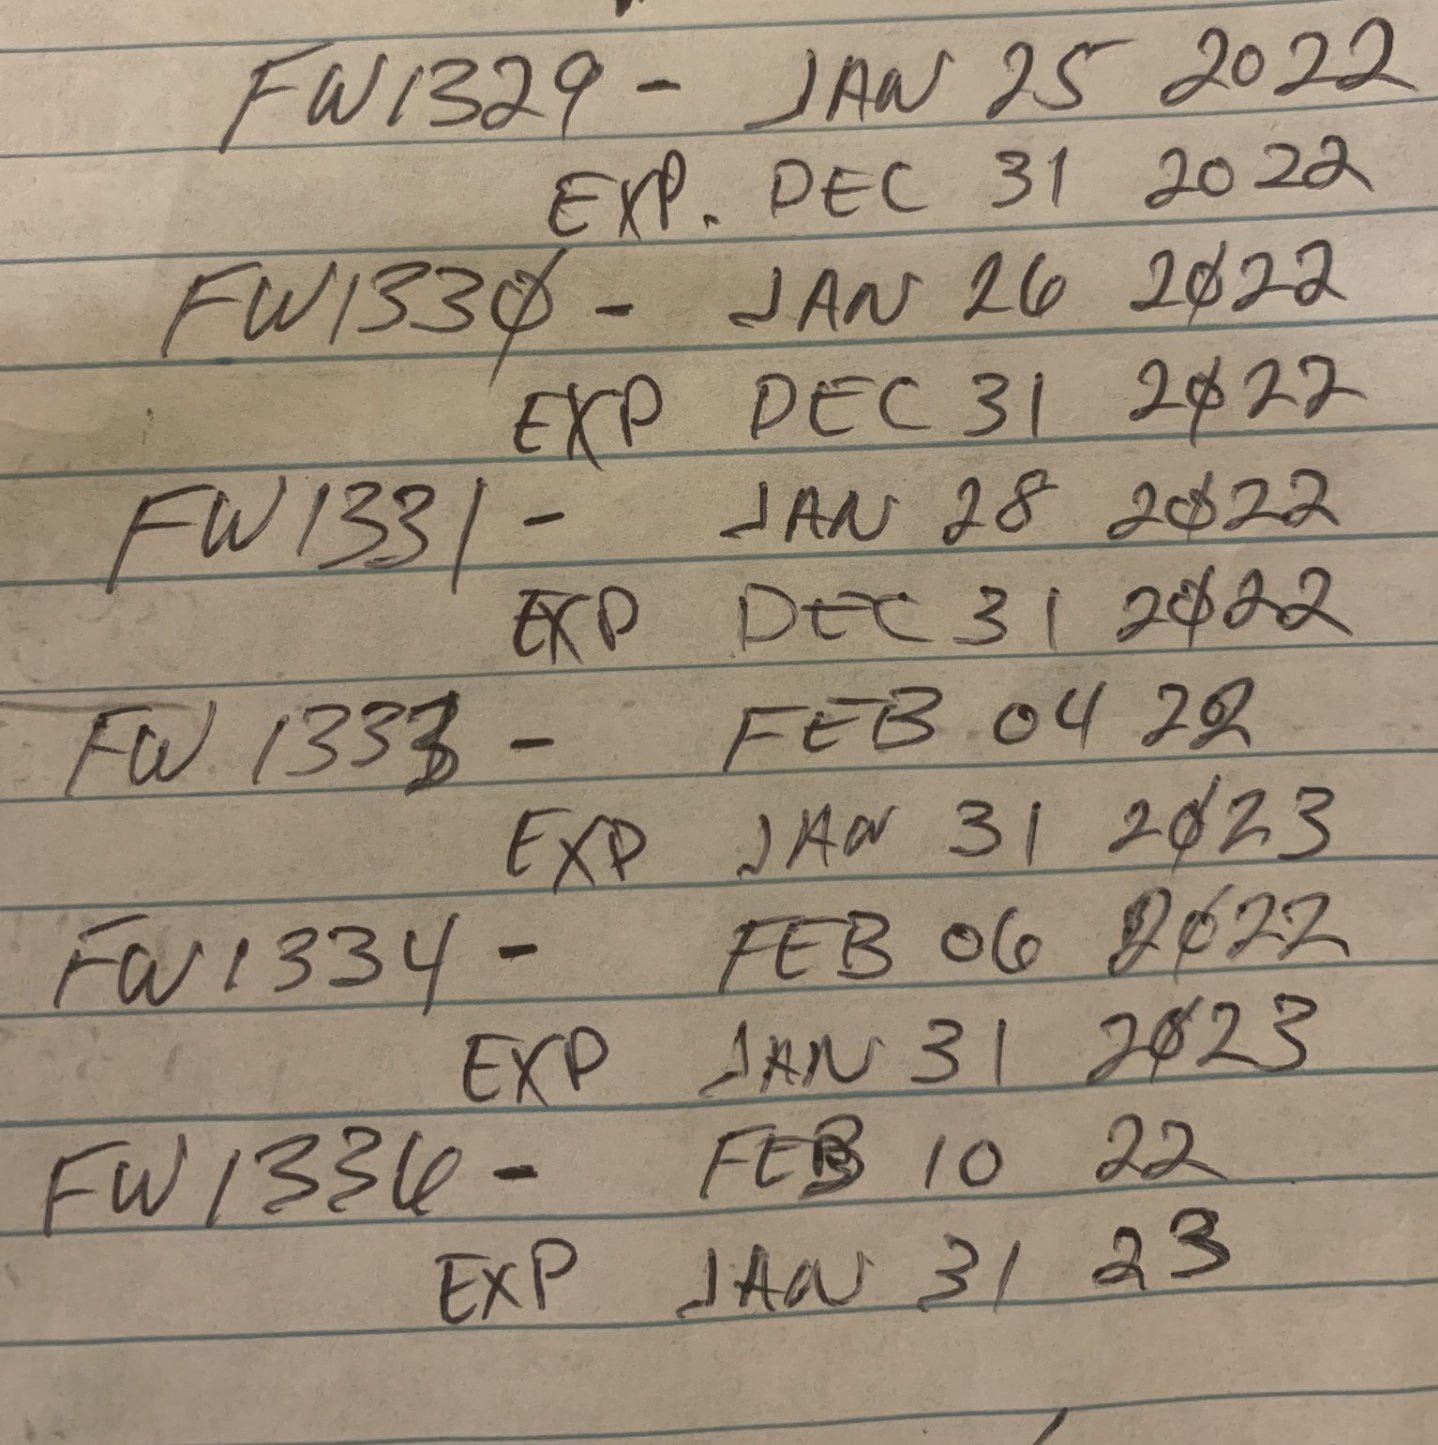 FW1329 - JAN 25 2022
EXP. DEC 31 2022
FW1330 - JAN 26 2022
EXP DEC 31 2022
FW1331 - JAN 28 2022
EXP DEC 31 2022
FW 1333 - FEB 04 22
EXP JAN 31 2023
FW1334 - FEB 06 2022
EXP JAN 31 2023
FW1336 - FEB 10 22
EXP JAN 31 23